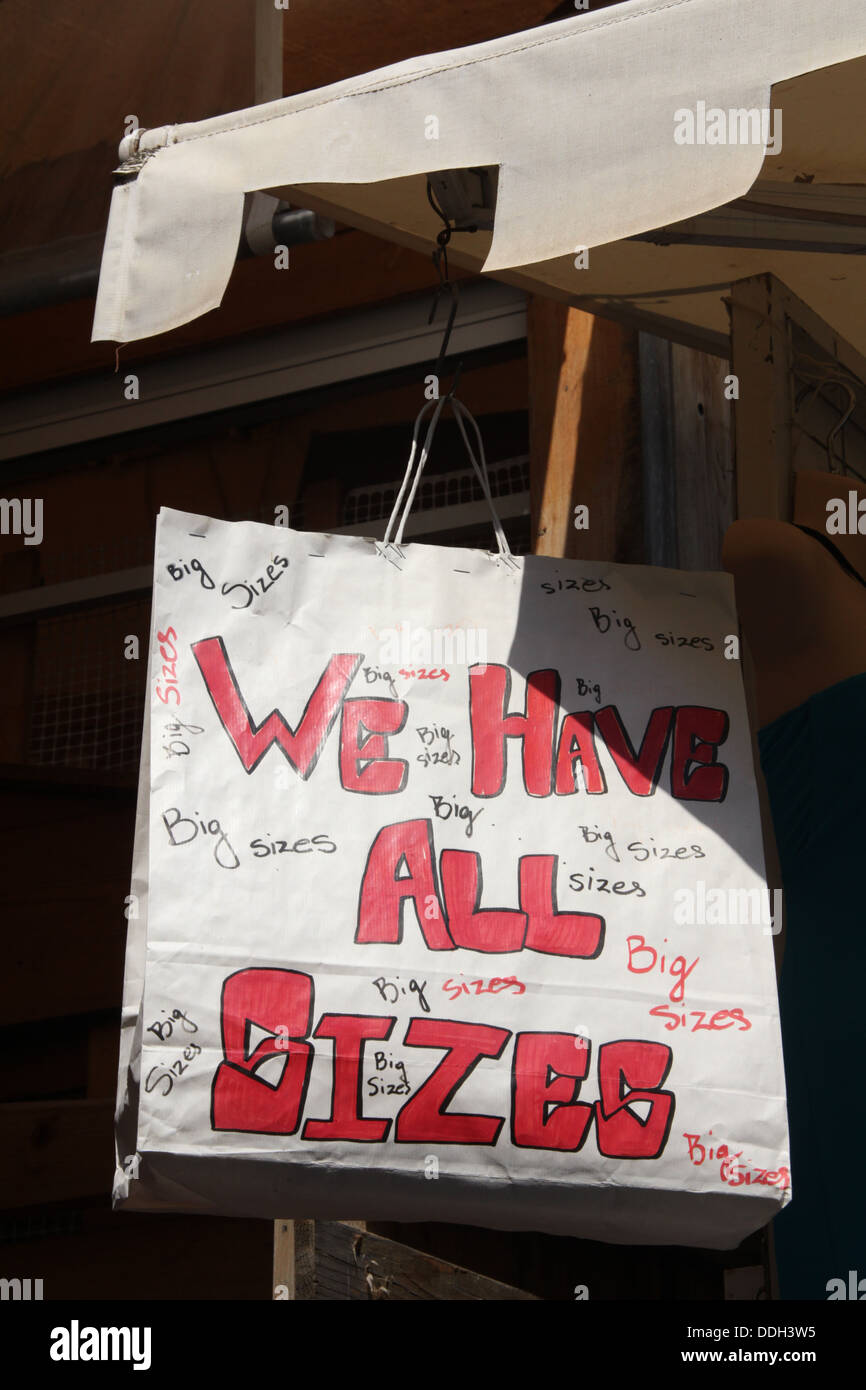 Big sizes
sizes
Big sizes
Big sizes
Big sizes
Big
We Have
Big
sizes
Big
Big
sizes
Big sizes
Big sizes
All
sizes
Big
sizes
Big sizes
Big
Sizes
Big
Sizes
Sizes
Big
sizes
a
alamy
alamy
Image ID: DDH3W5
www.alamy.com